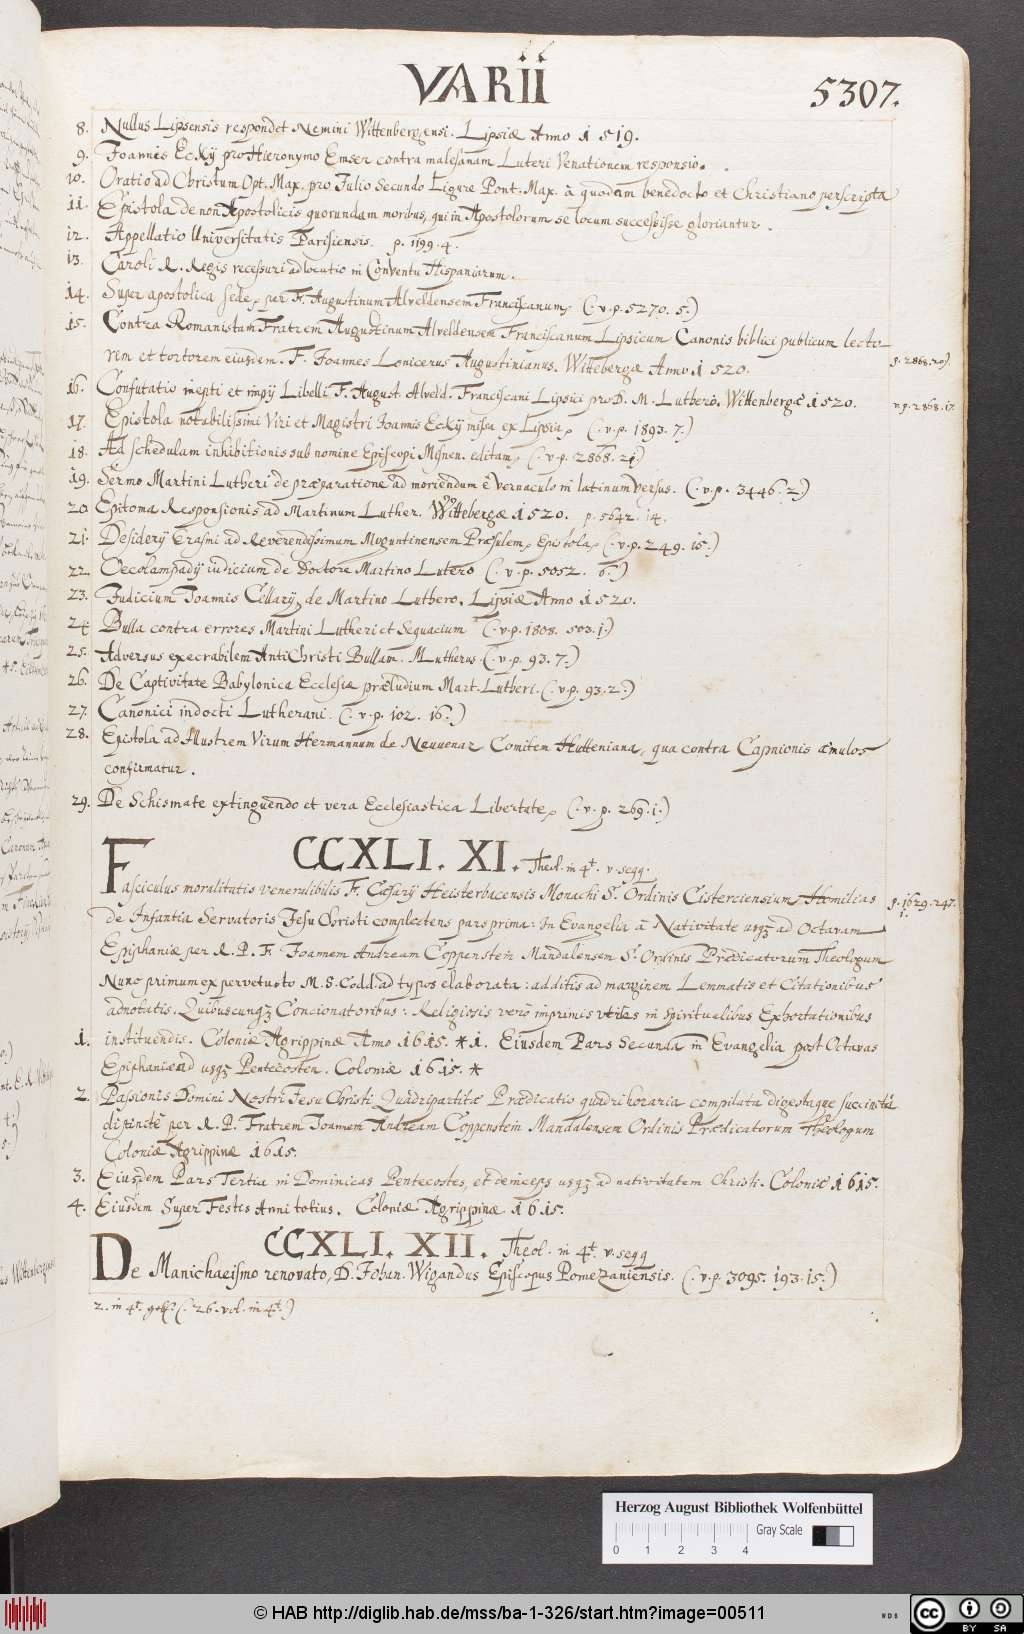 VARII
5307.
8. Nullus Lipsensis respondet Nemini Wittenbergensi. Lipsiæ Anno 1519.
9. Joannis Eckij pro Hieronymo Emser contra malesanam Luteri Venationem responsio.
10. Oratio ad Christum Opt. Max. pro Julio Secundo Ligure Pont. Max. à quodam benedocto et Christiano perscripta
11. Epistola de non Apostolicis quorundam moribus, qui in Apostolorum se locum successisse gloriantur.
12. Appellatio Universitatis Parisiensis. p. 1199. 4.
13. Caroli R. Regis recessuri adlocutio in Conventu Hispaniarum.
14. Super apostolica sede, per F. Augustinum Alveldensem Franciscanum, (. v. p. 5270. 5.)
15. Contra Romanistam Fratrem Augustinum Alveldensem Franciscanum Lipsicum Canonis biblici publicum lecto-
rem et tortorem eiusdem. F. Joannes Lonicerus Augustinianus. Wittebergæ Anno 1520. p. 2868. 20).
16. Confutatio inepti et impij Libelli F. August. Alveld. Franciscani Lipsici pro D. M. Luthero. Wittenbergæ 1520. v. p. 2868. 17.
17. Epistola notabilissimi Viri et Magistri Joannis Eckij missa ex Lipsia, (. v. p. 1893. 7.)
18. Ad schedulam inhibitionis sub nomine Episcopi Misnen. editam, (. v. p. 2868. 21)
19. Sermo Martini Lutheri de præparatione ad moriendum è vernaculo in latinum versus. (. v. p. 3446. 2.)
20. Epitoma Responsionis ad Martinum Luther. Wittebergæ 1520. p. 5642. 14.
21. Desiderij Erasmi ad Reverendissimum Moguntinensem Præsulem, Epistola, (. v. p. 249. 15.)
22. Oecolampadij iudicium de Doctore Martino Lutero (. v. p. 5052. 6.)
23. Judicium Joannis Cellarij, de Martino Luthero. Lipsiæ Anno 1520.
24. Bulla contra errores Martini Lutheri et Sequacium (. v. p. 1808. 503. 1.)
25. Adversus execrabilem AntiChristi Bullam. M. Lutherus. (. v. p. 93. 7.)
26. De Captivitate Babylonica Ecclesiæ præludium Mart. Lutheri. (. v. p. 93. 2.)
27. Canonici indocti Lutherani. (. v. p. 102. 16.)
28. Epistola ad Illustrem Virum Hermannum de Neuuenar Comitem Hutteniana, qua contra Capnionis æmulos
confirmatur.
29. De Schismate extinguendo et vera Ecclesiastica Libertate, (. v. p. 269. 1.)
CCXLI. XI. Theol. in 4t. v. seqq.
Fasciculus moralitatis venerabilis F. Cæsarij Heisterbacensis Monachi S. Ordinis Cisterciensium, Homilias p. 1629. 247. 1.
de Infantia Servatoris Jesu Christi complectens pars prima: In Evangelia à Nativitate usq3 ad Octavam
Epiphaniæ per R. P. F. Joannem Andream Coppenstein Mandalensem S. Ordinis Prædicatorum Theologum
Nunc primum ex pervetusto M. S. Cod. ad typos elaborata: additis ad marginem Lemmatis et Citationibus
adnotatis. Quibuscunq3 Concionatoribus: Religiosis verò imprimis utiles in spiritualibus Exhortationibus
1. instituendis. Coloniæ Agrippinæ Anno 1615. * 1. Eiusdem Pars Secunda in Evangelia post Octavas
Epiphaniæ ad usq3 Pentecosten. Coloniæ 1615. *
2. Passionis Domini Nostri Jesu Christi Quadripartitæ Prædicatis quadrihoraria compilata digestaque succinctè
distinctè per R. P. Fratrem Joannem Andream Coppenstein Mandalensem Ordinis Prædicatorum Theologum
Coloniæ Agrippinæ 1615.
3. Eiusdem Pars Tertia in Dominicas Pentecostes, et deinceps usq3 ad nativitatem Christi. Coloniæ 1615.
4. Eiusdem Super Festis Anni totius. Coloniæ Agrippinæ 1615.
CCXLI. XII. Theol. in 4t. v. seqq
De Manichaeismo renovato, D. Johan. Wigandus Episcopus Pomezaniensis. (. v. p. 3095. 193. 15.)
2. in 4t. (. 26. vol. in 4t.)
Herzog August Bibliothek Wolfenbüttel
Gray Scale
0 1 2 3 4
© HAB http://diglib.hab.de/mss/ba-1-326/start.htm?image=00511
CC BY SA